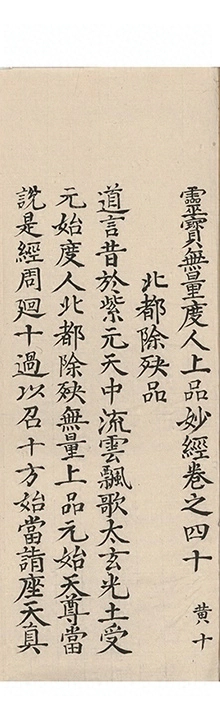 靈寳無量度人上品妙經卷之四十
黄十
北都除殃品
道言昔於紫元天中流雲飄歌太玄光土受
元始度人北都除殃無量上品元始天尊當
說是經周廻十過以召十方始當請座天真